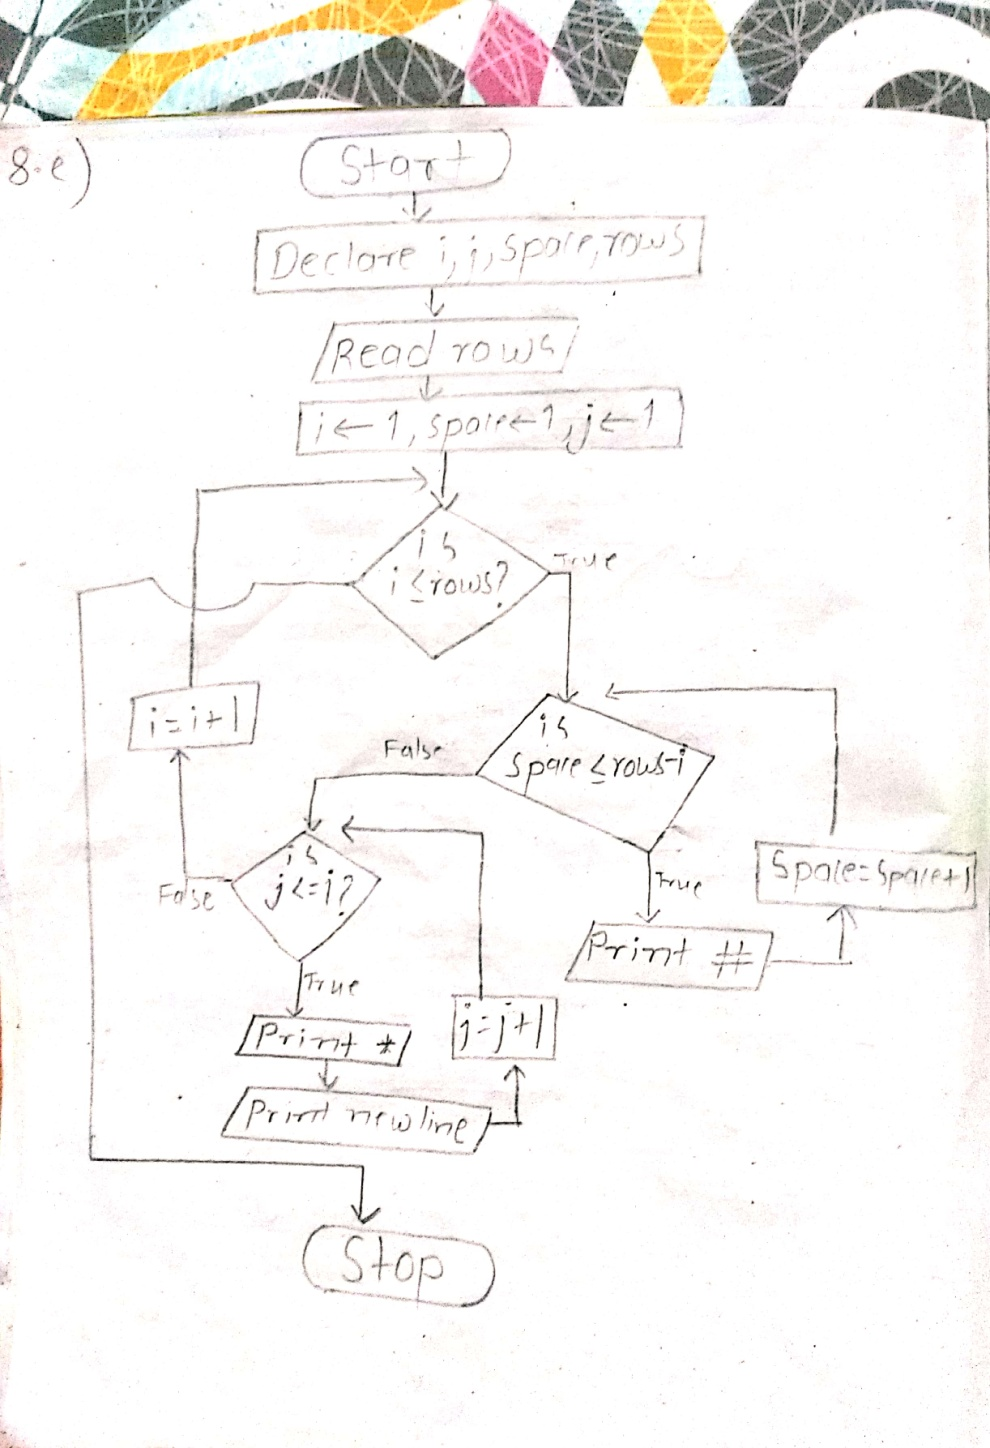 8.e)
Start
Declare i, j, space, rows
Read rows
i ← 1, space ← 1, j ← 1
is
i ≤ rows?
True
i = i + 1
is
space ≤ rows-i
False
is
j <= i?
Space = Space + 1
False
True
Print #
True
j = j + 1
Print *
Print newline
Stop